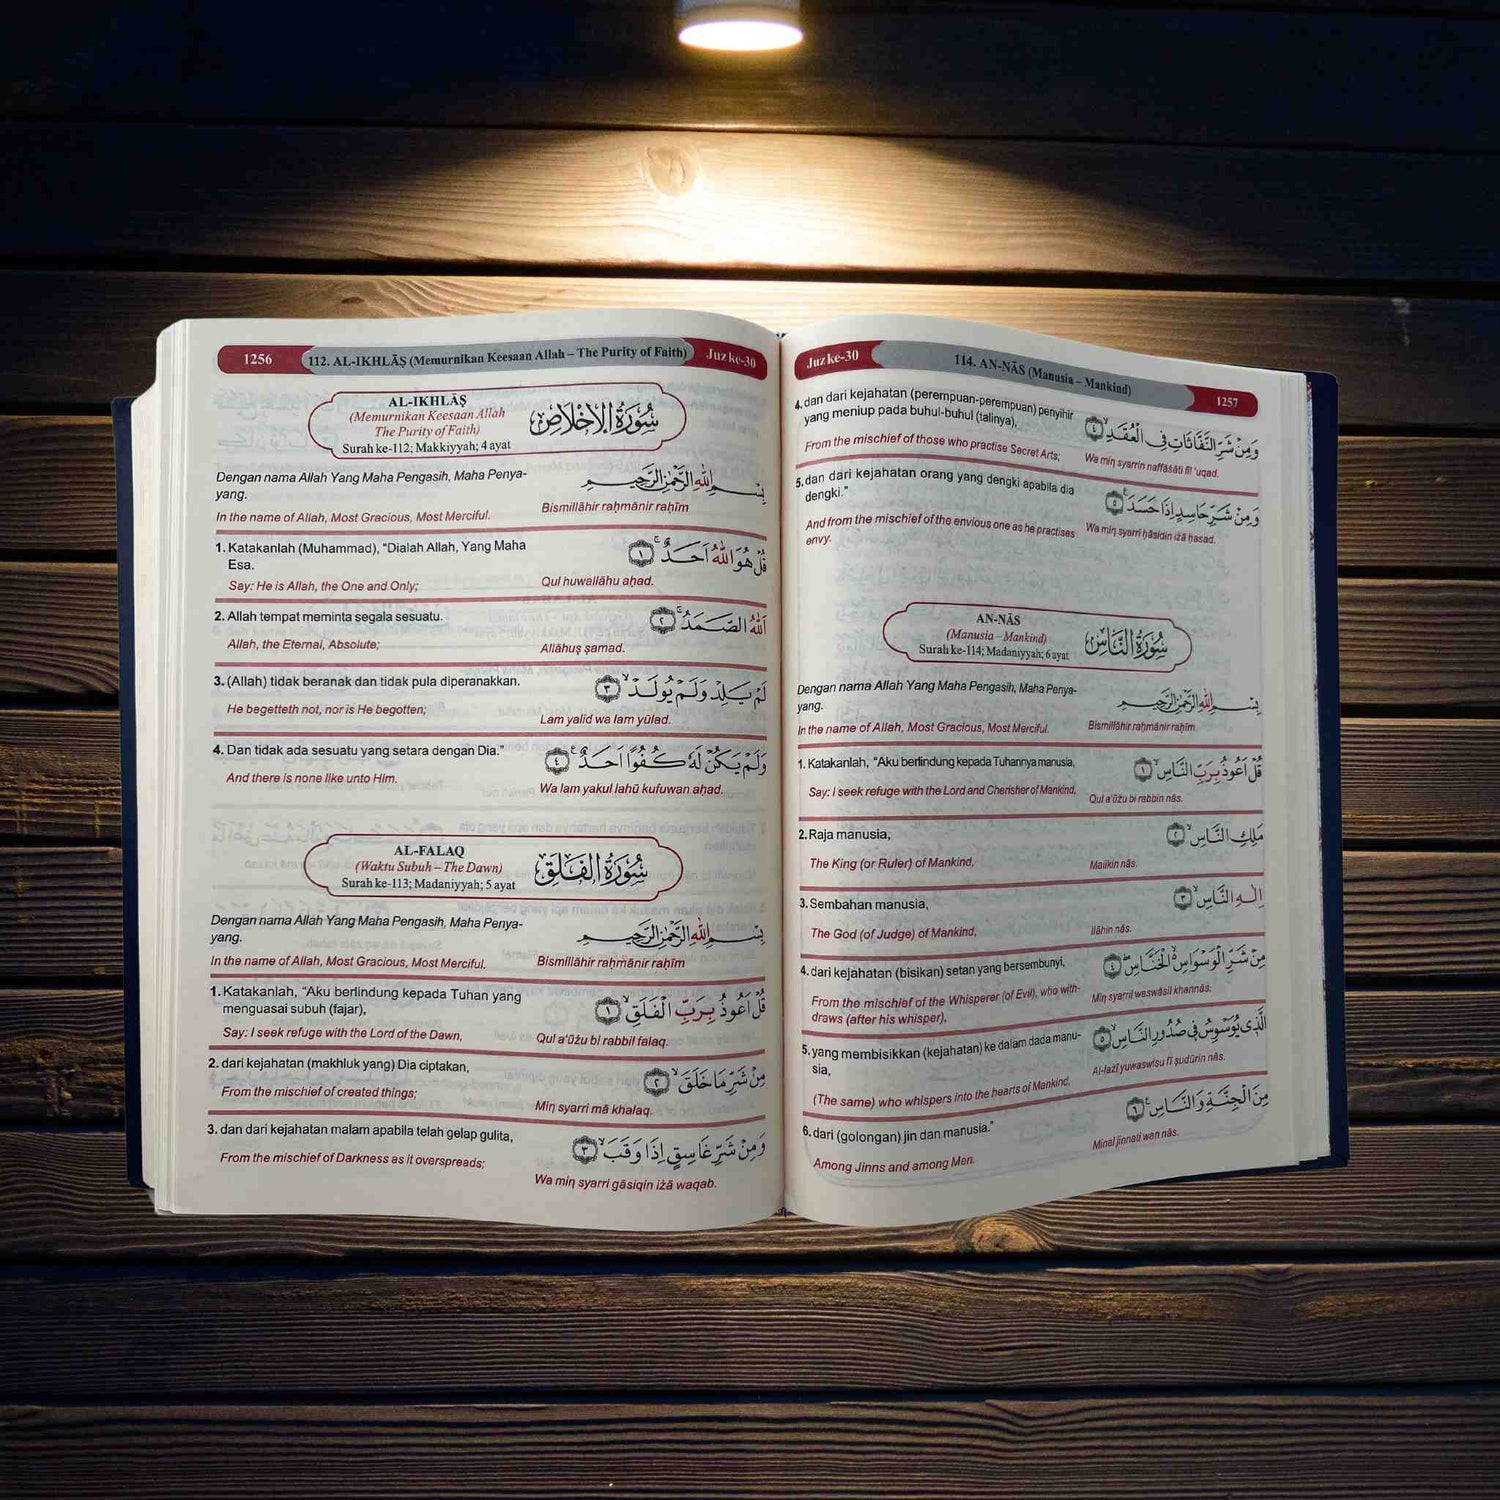 1256 112. AL-IKHLĀṢ (Memurnikan Keesaan Allah – The Purity of Faith) Juz ke-30
AL-IKHLĀṢ
(Memurnikan Keesaan Allah
The Purity of Faith)
Surah ke-112; Makkiyyah; 4 ayat
سُوْرَةُ الْاِخْلَاصِ
Dengan nama Allah Yang Maha Pengasih, Maha Penya-
yang.
In the name of Allah, Most Gracious, Most Merciful.
بِسْمِ اللّٰهِ الرَّحْمٰنِ الرَّحِيْمِ
Bismillāhir raḥmānir raḥīm
1. Katakanlah (Muhammad), “Dialah Allah, Yang Maha
Esa.
Say: He is Allah, the One and Only;
قُلْ هُوَ اللّٰهُ اَحَدٌۚ ١
Qul huwallāhu aḥad.
2. Allah tempat meminta segala sesuatu.
Allah, the Eternal, Absolute;
اَللّٰهُ الصَّمَدُۚ ٢
Allāhuṣ ṣamad.
3. (Allah) tidak beranak dan tidak pula diperanakkan.
He begetteth not, nor is He begotten;
لَمْ يَلِدْ وَلَمْ يُوْلَدْۙ ٣
Lam yalid wa lam yūlad.
4. Dan tidak ada sesuatu yang setara dengan Dia.”
And there is none like unto Him.
وَلَمْ يَكُنْ لَّهٗ كُفُوًا اَحَدٌ ٤
Wa lam yakul lahū kufuwan aḥad.
AL-FALAQ
(Waktu Subuh – The Dawn)
Surah ke-113; Madaniyyah; 5 ayat
سُوْرَةُ الْفَلَقِ
Dengan nama Allah Yang Maha Pengasih, Maha Penya-
yang.
In the name of Allah, Most Gracious, Most Merciful.
بِسْمِ اللّٰهِ الرَّحْمٰنِ الرَّحِيْمِ
Bismillāhir raḥmānir raḥīm
1. Katakanlah, “Aku berlindung kepada Tuhan yang
menguasai subuh (fajar),
Say: I seek refuge with the Lord of the Dawn,
قُلْ اَعُوْذُ بِرَبِّ الْفَلَقِۙ ١
Qul a‘ūżu bi rabbil falaq.
2. dari kejahatan (makhluk yang) Dia ciptakan,
From the mischief of created things;
مِنْ شَرِّ مَا خَلَقَۙ ٢
Miṇ syarri mā khalaq.
3. dan dari kejahatan malam apabila telah gelap gulita,
From the mischief of Darkness as it overspreads;
وَمِنْ شَرِّ غَاسِقٍ اِذَا وَقَبَۙ ٣
Wa miṇ syarri gāsiqin iżā waqab.
Juz ke-30 114. AN-NĀS (Manusia – Mankind) 1257
4. dan dari kejahatan (perempuan-perempuan) penyihir
yang meniup pada buhul-buhul (talinya),
From the mischief of those who practise Secret Arts;
وَمِنْ شَرِّ النَّفّٰثٰتِ فِى الْعُقَدِۙ ٤
Wa miṇ syarrin naffāṡāti fīl ‘uqad.
5. dan dari kejahatan orang yang dengki apabila dia
dengki.”
And from the mischief of the envious one as he practises
envy.
وَمِنْ شَرِّ حَاسِدٍ اِذَا حَسَدَ ٥
Wa miṇ syarri ḥāsidin iżā ḥasad.
AN-NĀS
(Manusia – Mankind)
Surah ke-114; Madaniyyah; 6 ayat
سُوْرَةُ النَّاسِ
Dengan nama Allah Yang Maha Pengasih, Maha Penya-
yang.
In the name of Allah, Most Gracious, Most Merciful.
بِسْمِ اللّٰهِ الرَّحْمٰنِ الرَّحِيْمِ
Bismillāhir raḥmānir raḥīm
1. Katakanlah, “Aku berlindung kepada Tuhannya manusia,
Say: I seek refuge with the Lord and Cherisher of Mankind,
قُلْ اَعُوْذُ بِرَبِّ النَّاسِۙ ١
Qul a‘ūżu bi rabbin nās.
2. Raja manusia,
The King (or Ruler) of Mankind,
مَلِكِ النَّاسِۙ ٢
Malikin nās.
3. Sembahan manusia,
The God (of Judge) of Mankind,
اِلٰهِ النَّاسِۙ ٣
Ilāhin nās.
4. dari kejahatan (bisikan) setan yang bersembunyi,
From the mischief of the Whisperer (of Evil), who with-
draws (after his whisper),
مِنْ شَرِّ الْوَسْوَاسِ الْخَنَّاسِۖ ٤
Miṇ syarril waswāsil khannās.
5. yang membisikkan (kejahatan) ke dalam dada manu-
sia,
(The same) who whispers into the hearts of Mankind,
الَّذِيْ يُوَسْوِسُ فِيْ صُدُوْرِ النَّاسِۙ ٥
Al-lażī yuwaswisu fī ṣudūrin nās.
6. dari (golongan) jin dan manusia.”
Among Jinns and among Men.
مِنَ الْجِنَّةِ وَالنَّاسِ ٦
Minal jinnati wan nās.